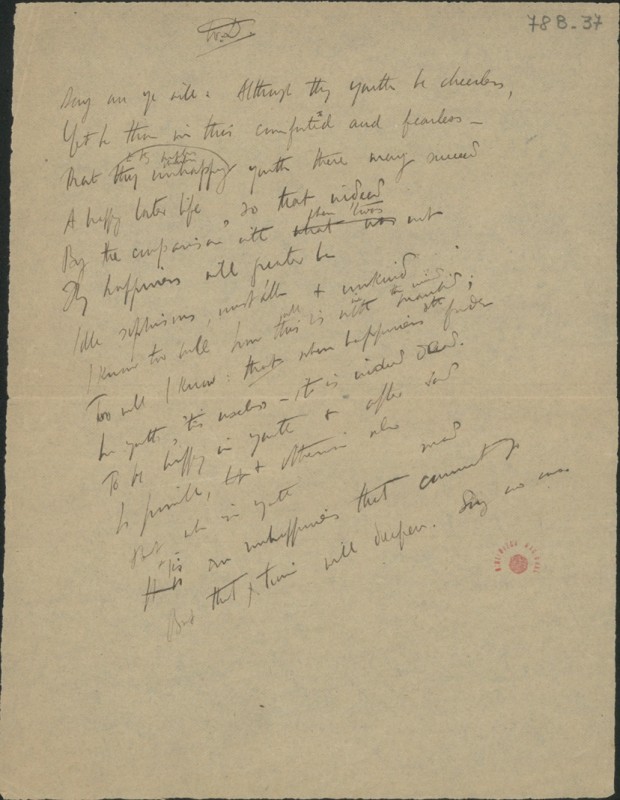 78B-37
W.D.
Say an ye will: Although thy youth be cheerless,
Yet be thou in this comforted and fearless —
That thy unhappy youth there may succeed
A happy later life, so that indeed
By the comparison with what was not
Thy happiness will greater be
Idle sophisms, unstable & unkind
I know too well how this is with mankind;
Too well I know: that when happiness
In youth, 'tis useless — it is indeed dead.
To be happy in youth & after sad
Is possible, but otherwise
But who in youth
'Tis an unhappiness that cannot go
But that time will deepen. Say no more.